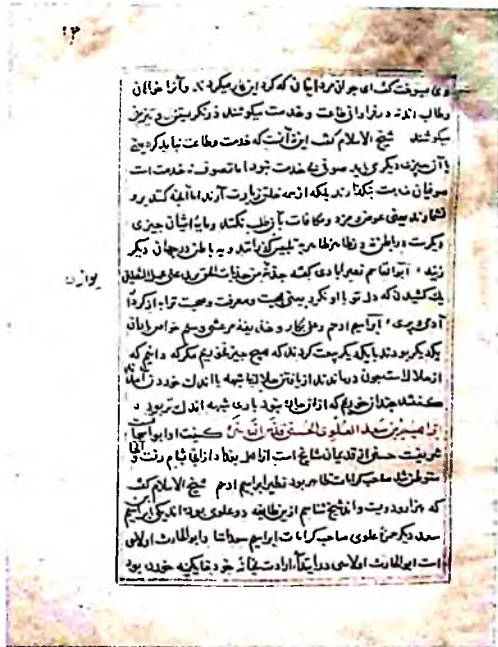 ۱۴
وی میرفت گفت ای جوان مردا اینان که کرد این کار میگردند و آنرا خواهان
و طالب اند نه در فراوانی طاعت و خدمت میکوشند و نگریستن و تیزبین
میکوشند شیخ الاسلام گفت این نه آنست که خدمت و طاعت نباید کرد یعنی
با آن چیزی دیگر می باید صوفی بی خدمت نبود اما تصوف نه خدمت است
صوفیان خدمت نگذارند بلکه از همه خلق زیارت آرند اما آنچه کنند بر و
نشمارند یعنی عوض و مزد و مکافات بآن طلب نکنند و مایه ایشان چیزی
دیگرست در باطن نه در ظاهر بظاهر بتلبیس گذرانند و به باطن در جهان دیگر
زیند ابو القاسم نصیرابادی گفته جذبة من جذبات الحق تربی علی عمل الثقلین
یوازی
یك كشیدن که دل تو با او نگرد یعنی محبت و معرفت و صحبت ترا به از کردار
آدمی و پری ابراهیم ادهم و علی بکار و حذیفه مرعشی و سلم خواص یاران
یکدیگر بودند با یکدیگر بیعت کردند که هیچ چیز نخوریم مگر که دانیم که
از حلال است چون درماندند از یافتن حلال بی شبهه با اندك خوردن آمدند
گفتند چندان خوریم که از آن چاره نبود باری شبهه اندك تر بود
ابراهیم بن سعد العلوی الحسنی قدس الله سره کنیت او ابو اسحاق
شریفیست حسنی از قدیمان مشایخ است از اهل بغداد از آنجا بشام رفت و آنجا
متوطن شد صاحب کرامات ظاهر بود نظیر ابراهیم ادهم شیخ الاسلام گفت
که هزار و دویست و اند شیخ شناسم ازین طایفه دو علوی بود اند یکی ابراهیم بن
سعد دیگر حمزه علوی صاحب کرامات ابراهیم سعد استاد ابو الحارث اولاسی
است ابو الحارث اولاسی در ابتدا ارادت بخانه خود خایگینه خورده بود